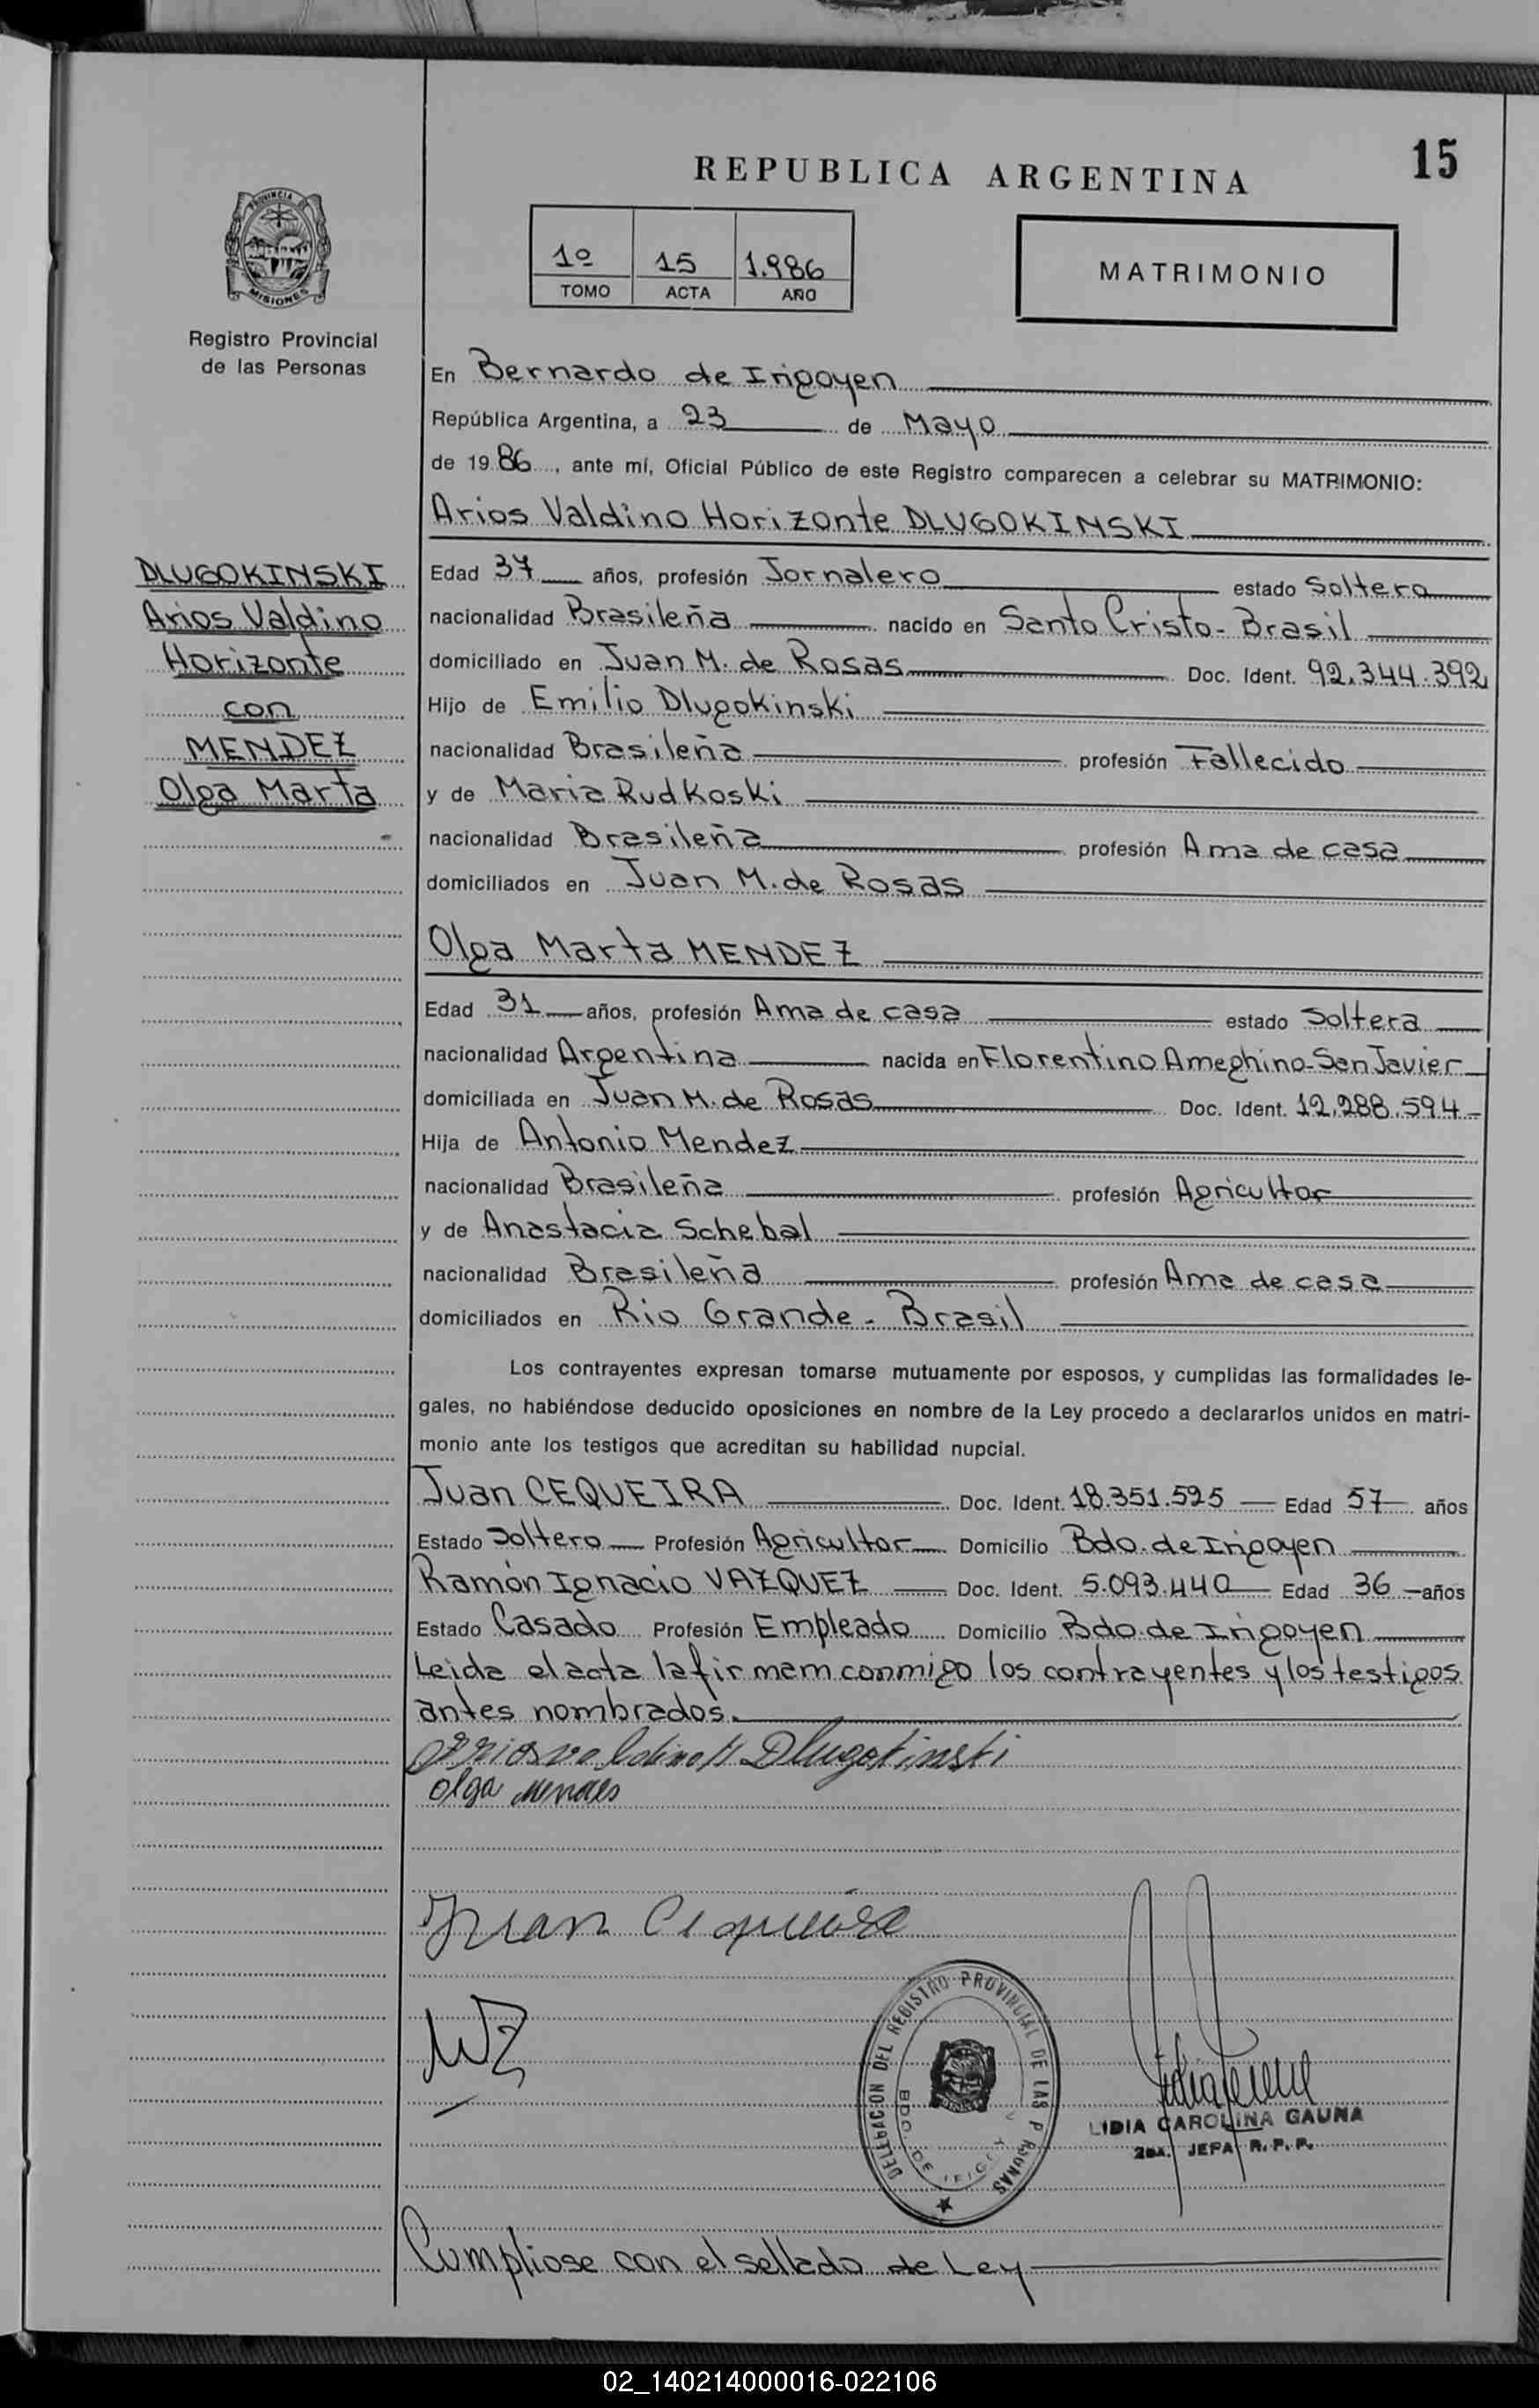 15
REPUBLICA ARGENTINA
PROVINCIA DE
MISIONES
Registro Provincial
de las Personas
1º 15 1.986
TOMO ACTA AÑO
MATRIMONIO
En Bernardo de Irigoyen
República Argentina, a 23 de Mayo
de 1986, ante mí, Oficial Público de este Registro comparecen a celebrar su MATRIMONIO:
Arios Valdino Horizonte DLUGOKINSKI
DLUGOKINSKI
Arios Valdino
Horizonte
con
MENDEZ
Olga Marta
Edad 37 años, profesión Jornalero estado Soltero
nacionalidad Brasileña nacido en Santo Cristo - Brasil
domiciliado en Juan M. de Rosas Doc. Ident. 92.344.392
Hijo de Emilio Dlugokinski
nacionalidad Brasileña profesión Fallecido
y de Maria Rudkoski
nacionalidad Brasileña profesión Ama de casa
domiciliados en Juan M. de Rosas
Olga Marta MENDEZ
Edad 31 años, profesión Ama de casa estado Soltera
nacionalidad Argentina nacida en Florentino Ameghino - San Javier
domiciliada en Juan M. de Rosas Doc. Ident. 12.288.594-
Hija de Antonio Mendez
nacionalidad Brasileña profesión Agricultor
y de Anastacia Schebal
nacionalidad Brasileña profesión Ama de casa
domiciliados en Rio Grande - Brasil
Los contrayentes expresan tomarse mutuamente por esposos, y cumplidas las formalidades le-
gales, no habiéndose deducido oposiciones en nombre de la Ley procedo a declararlos unidos en matri-
monio ante los testigos que acreditan su habilidad nupcial.
Juan CEQUEIRA Doc. Ident. 18.351.595 Edad 57 años
Estado Soltero Profesión Agricultor Domicilio Bdo. de Irigoyen
Ramón Ignacio VAZQUEZ Doc. Ident. 5.093.440 Edad 36 años
Estado Casado Profesión Empleado Domicilio Bdo. de Irigoyen
Leida el acta la firmam conmigo los contrayentes y los testigos
antes nombrados.
Arios valdino H Dlugokinski
Olga Mendes
Juan Cequeira
DELEGACION DEL REGISTRO PROVINCIAL DE LAS PERSONAS
BDO DE IRIGOY
LIDIA CAROLINA GAUNA
2da. JEFA R. P. P.
Cumpliose con el sellado de Ley
02_140214000016-022106